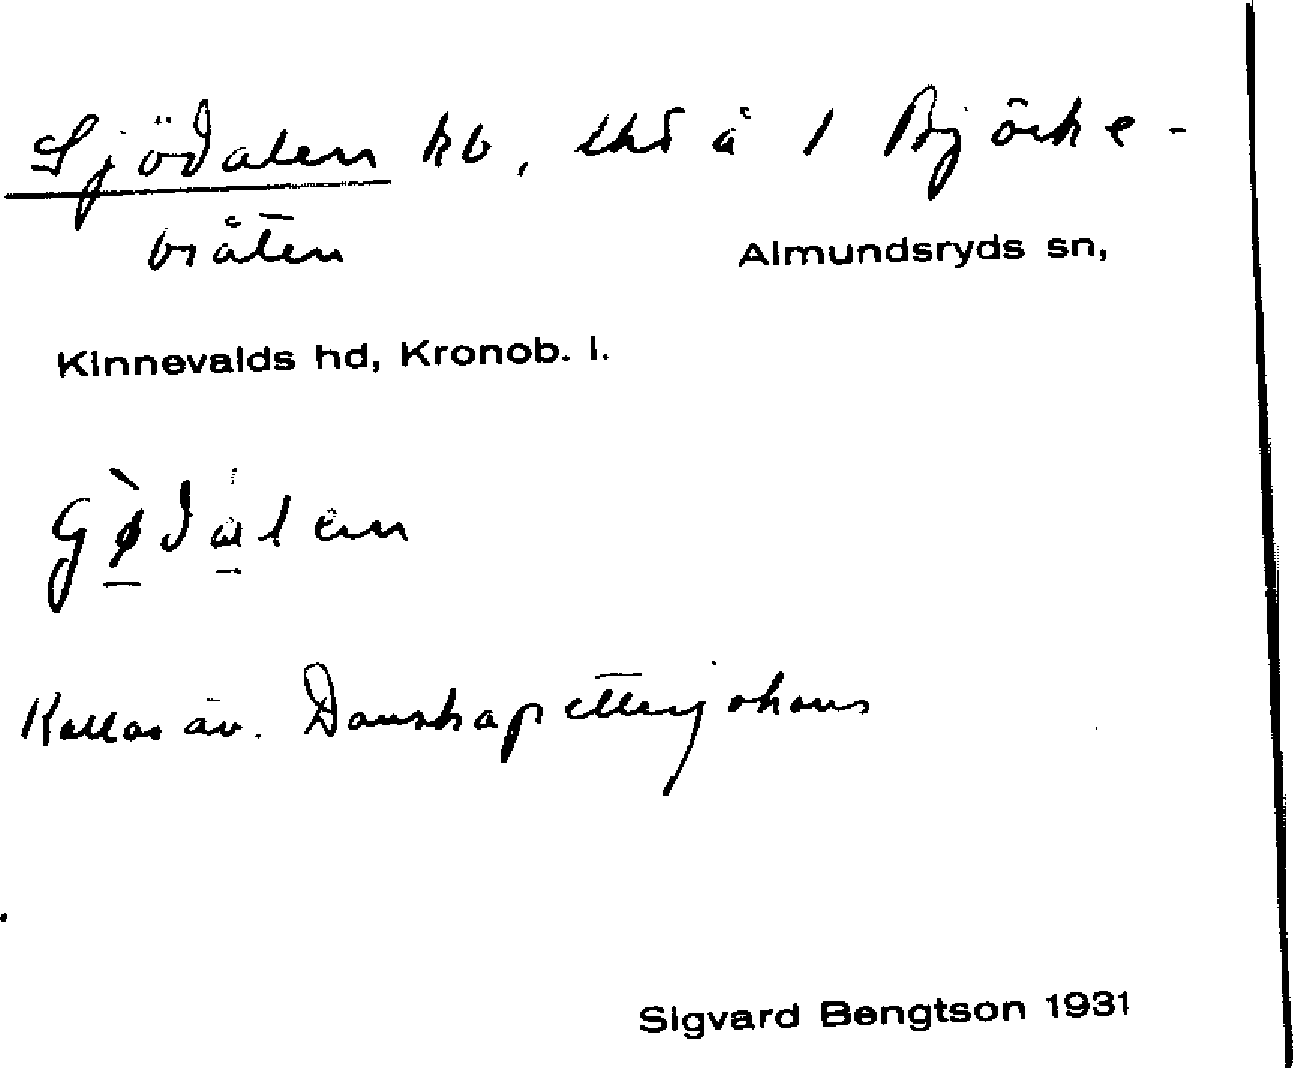 Sjödalen hb, lhd å 1 Björke-
bråten
Almundsryds sn,
Kinnevalds hd, Kronob. l.
Kallas äv. Danskapettersjohans
Sigvard Bengtson 1931